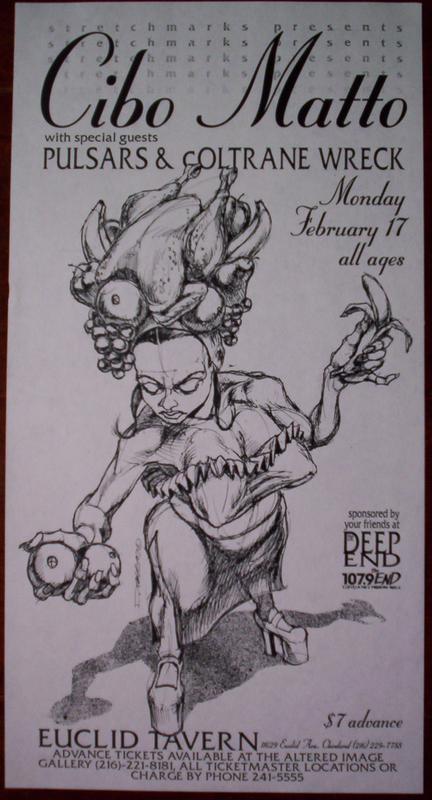 stretchmarks presents
stretchmarks presents
stretchmarks presents
stretchmarks presents
Cibo Matto
with special guests
PULSARS & COLTRANE WRECK
Monday
February 17
all ages
sponsored by
your friends at
DEEP
END
107.9 END
$7 advance
EUCLID TAVERN 11629 Euclid Ave. Cleveland (216) 229-7788
ADVANCE TICKETS AVAILABLE AT THE ALTERED IMAGE
GALLERY (216)-221-8181, ALL TICKETMASTER LOCATIONS OR
CHARGE BY PHONE 241-5555